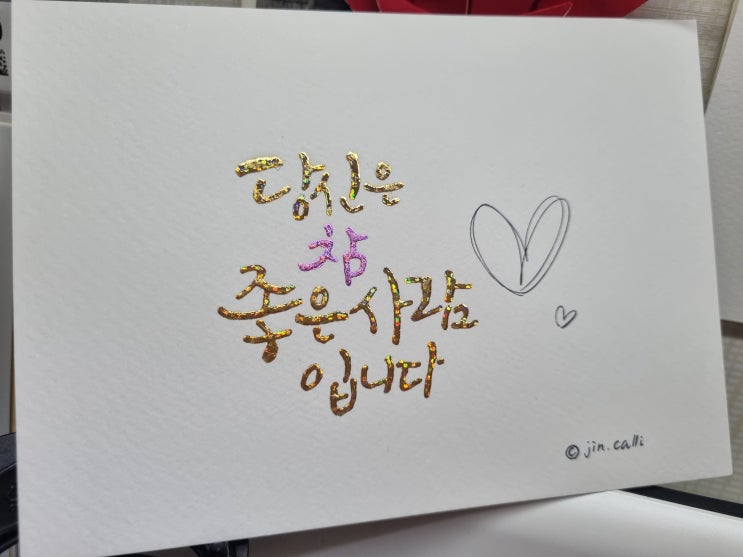 당신은
참
좋은사람
입니다
© jin.calli